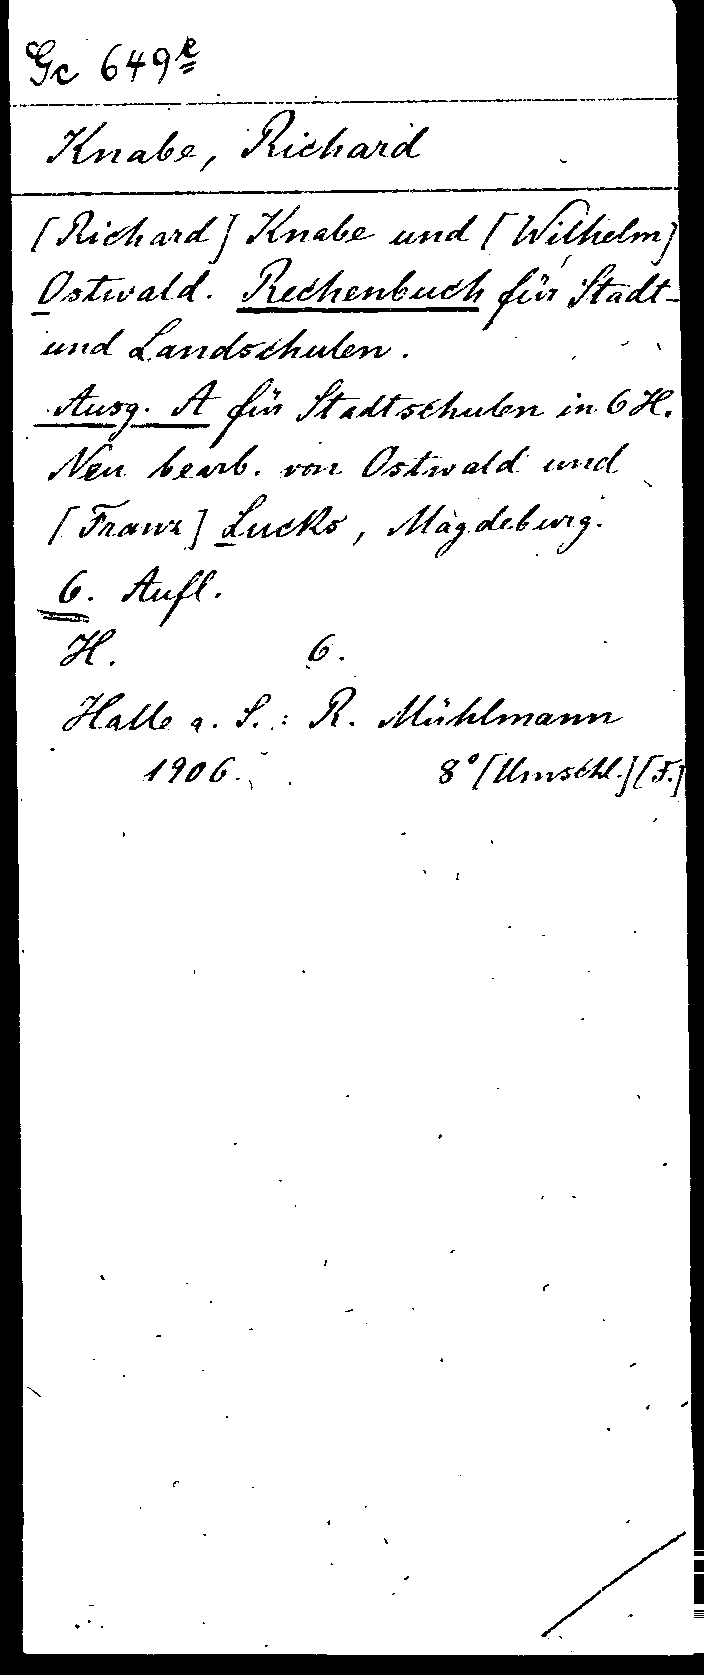 Gc 649e
Knabe, Richard
[Richard] Knabe und [Wilhelm]
Ostwald. Rechenbuch für Stadt-
und Landschulen.
Ausg. A für Stadtschulen in 6 H.
Neu bearb. von Ostwald und
[Franz] Lucks, Magdeburg.
6. Aufl.
H. 6.
Halle a. S.: R. Mühlmann
1906. 8° [Umschl.] [F.]